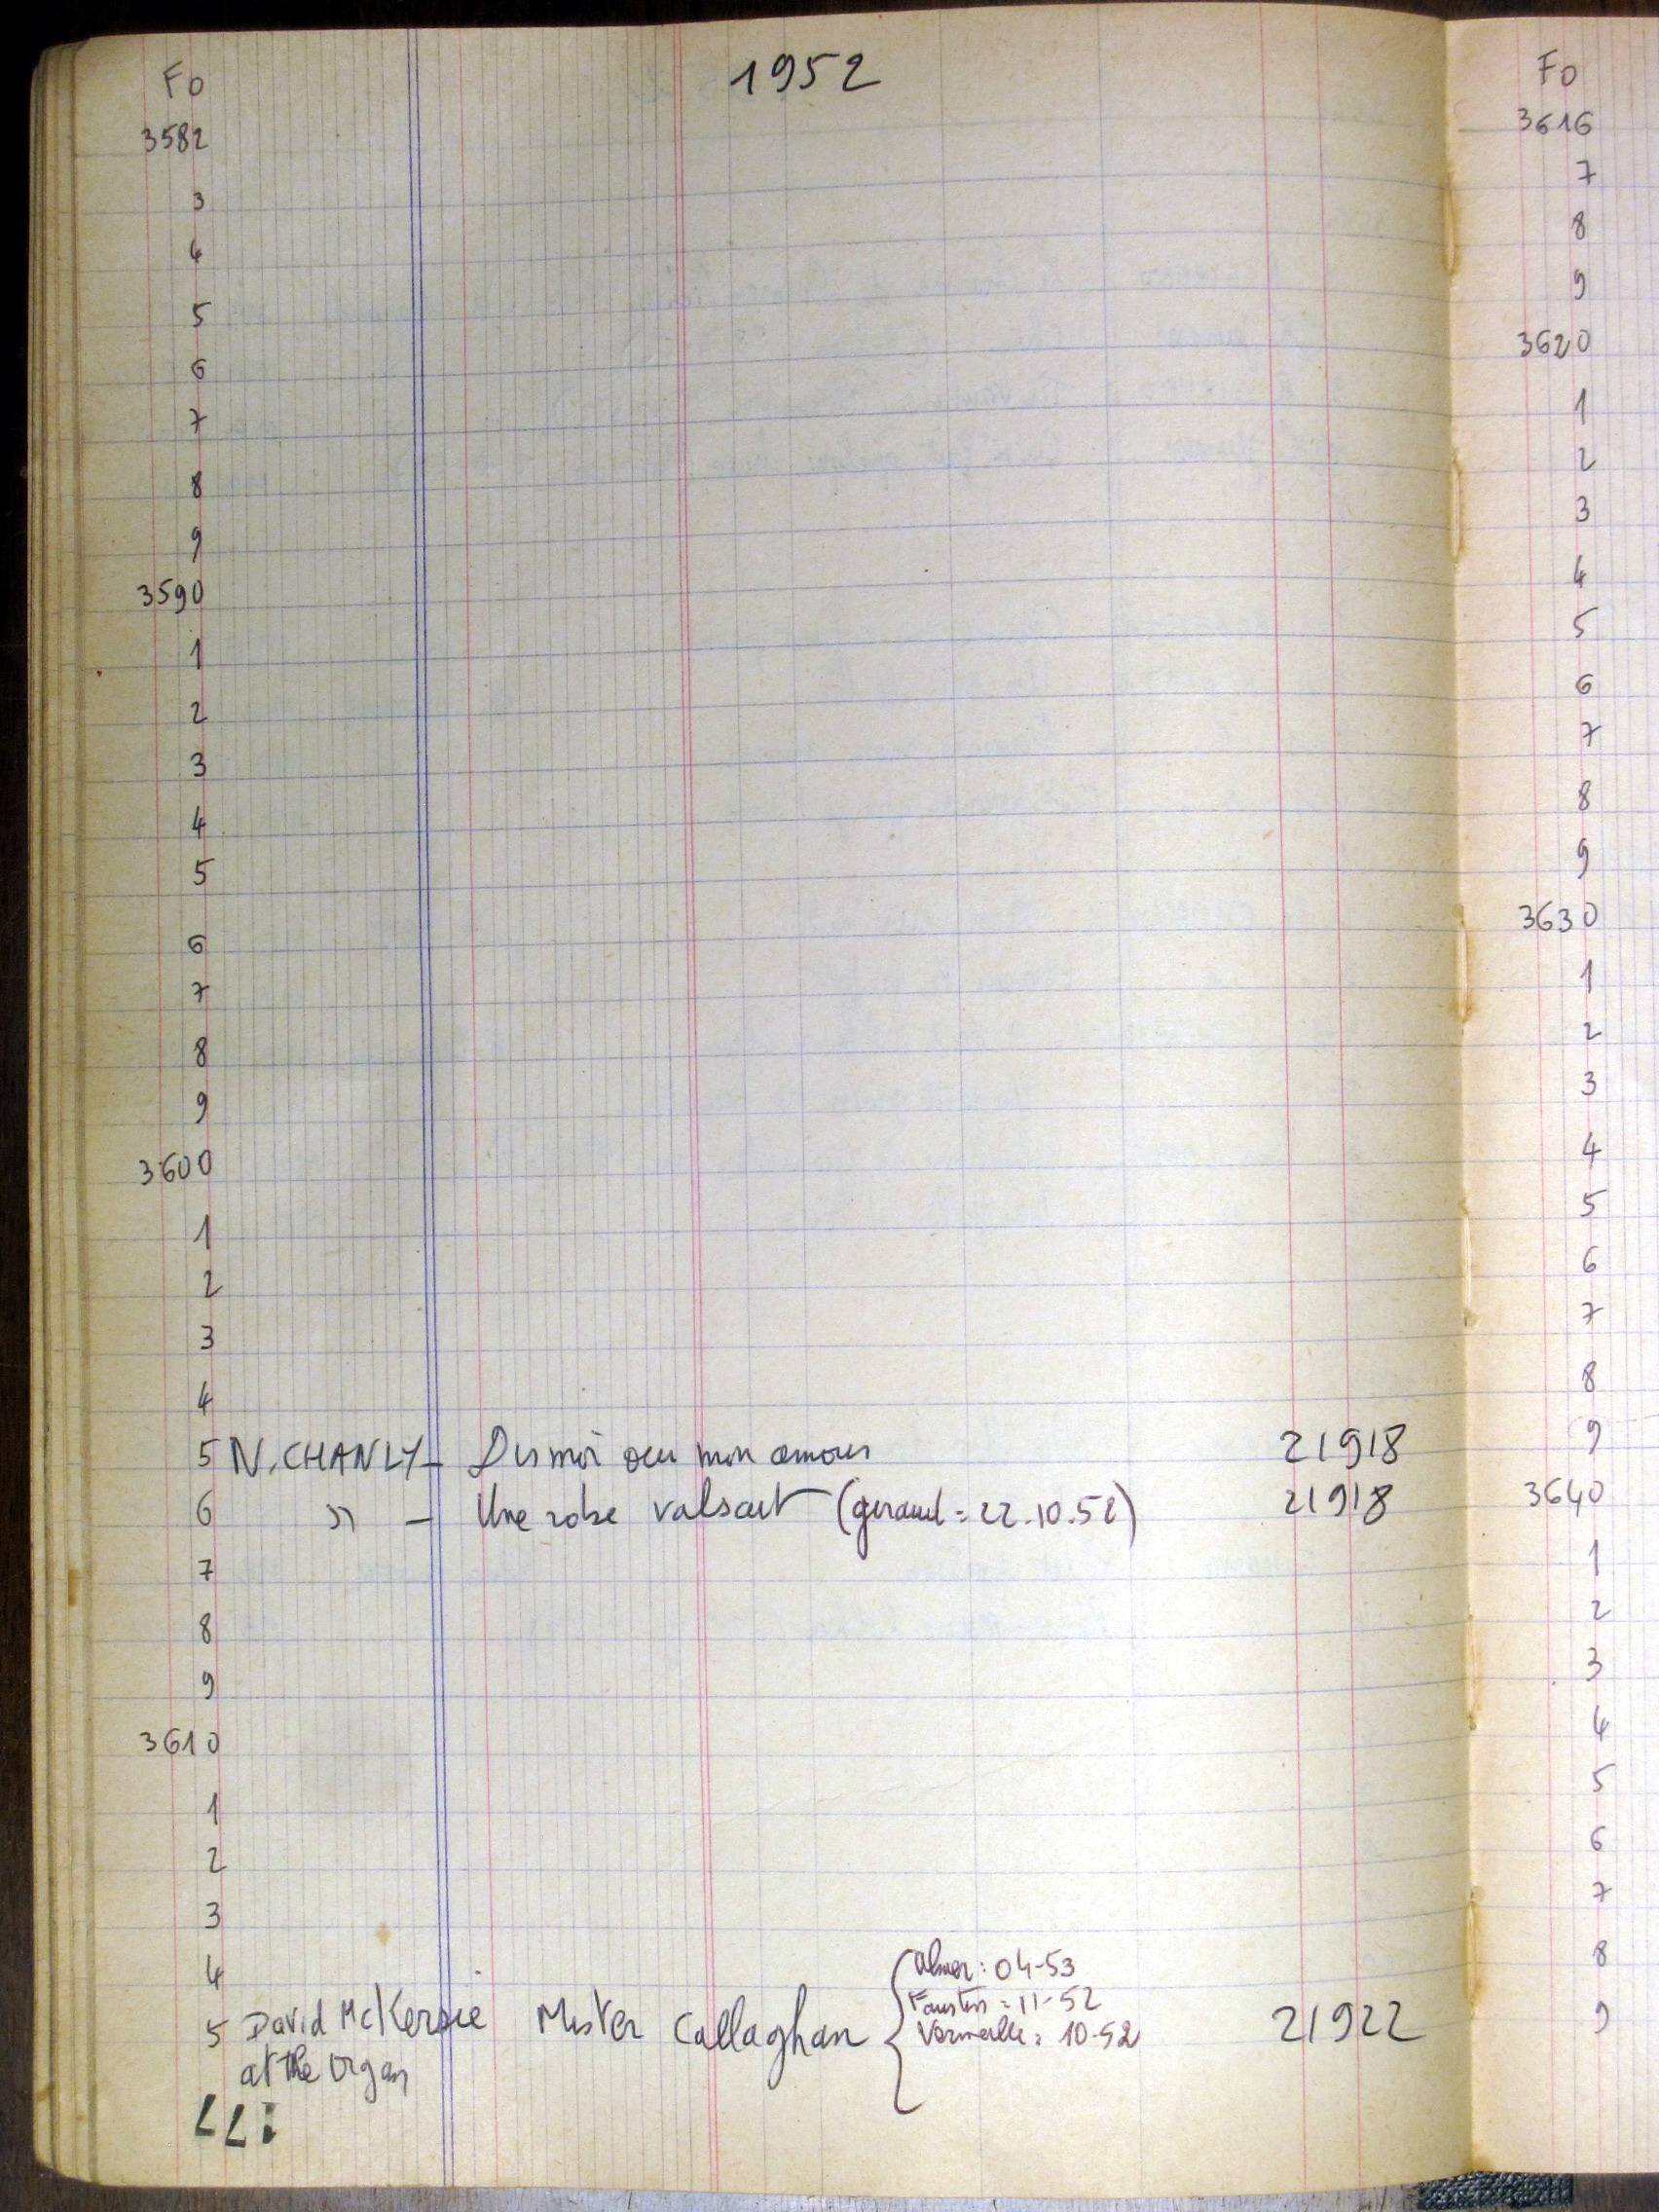 Fo 1952
3582
3
4
5
6
7
8
9
3590
1
2
3
4
5
6
7
8
9
3600
1
2
3
4
5 N. CHANLY - Dis moi mon amour 21918
6 " - Une robe valsait (geraud = 22.10.52) 21918
7
8
9
3610
1
2
3
4
5 David McKersie Mister Callaghan { 21922
Alner: 04-53
Faustin = 11-52
10-52
at the organ
Fo
3616
7
8
9
3620
1
2
3
4
5
6
7
8
9
3630
1
2
3
4
5
6
7
8
9
3640
1
2
3
4
5
6
7
8
9